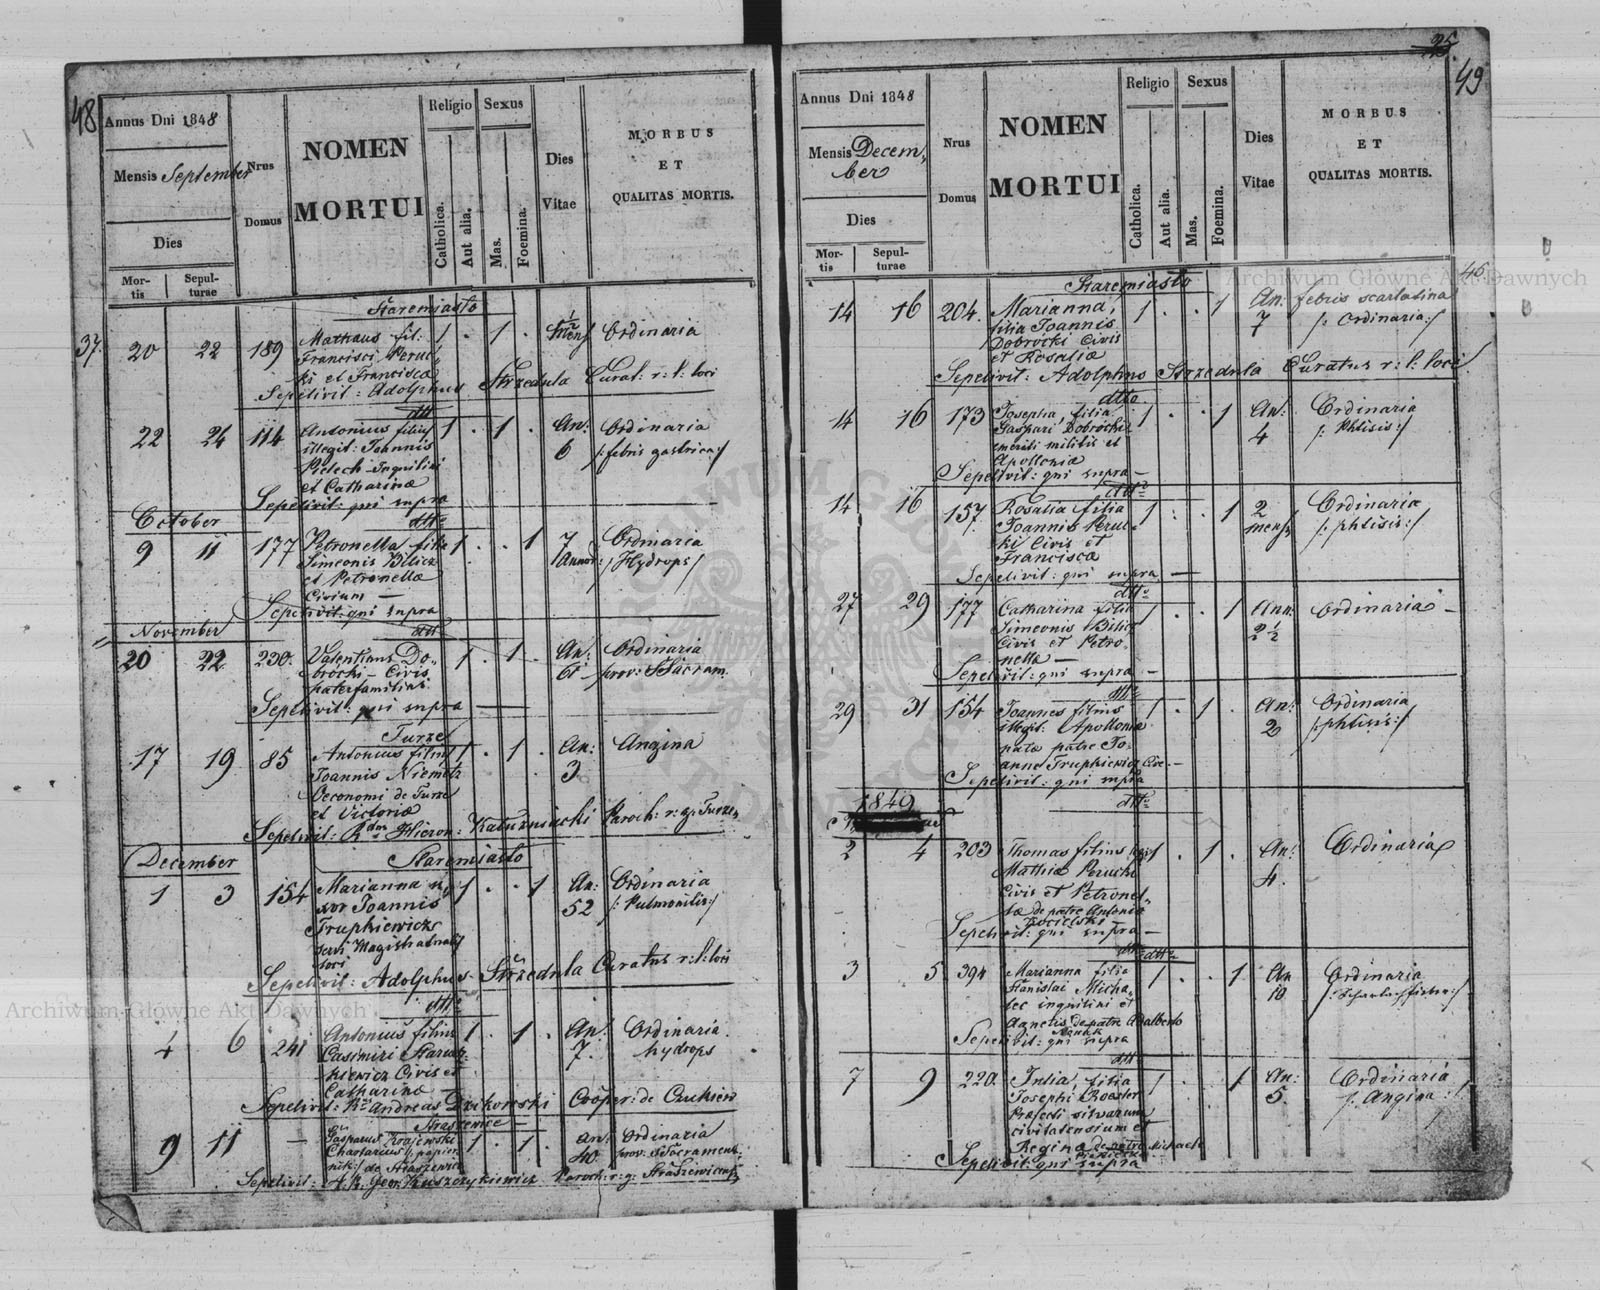 48
Annus Dni 1848
Mensis September
Dies
Mortis
Sepulturae
Nrus
Domus
NOMEN
MORTUI
Religio
Catholica.
Aut alia.
Sexus
Mas.
Foemina.
Dies
Vitae
MORBUS
ET
QUALITAS MORTIS.
Staremiasto
37.
20 22 189
Mathaus fil:
Francisci Peruc
ki et Francisca
1 . 1 .
½ mens
Ordinaria
Sepelivit: Adolphus Strzedula Curat: r: l: loci
dtt
22 24 114
Antonius filius
illegit: Joannis
Pielech Inquilini
et Catharinæ
1 . 1 .
An: 6
Ordinaria
/: febris gastrica:/
Sepelivit: qui supra
October
dtto
9 11 177
Petronella filia
Simeonis Bilicz
et Petronellæ
Civium —
1 . . 1
7 Annor:
Ordinaria
/Hydrops/
Sepelivit: qui supra
November
dtt
20 22 230.
Valentinus Do-
brocki - Civis
paterfamilias
1 . 1 .
An: 61
Ordinaria
prov: SSacram.
Sepelivit: qui supra
Turze
17 19 85
Antonius filius
Joannis Niemetz
Oeconomi de Turze
et Victoriæ
1 . 1 .
An: 3
Angina
Sepelivit: Rdus Hieron: Paroch: r: g: Turze
December
Staremiasto
1 3 154
Marianna u-
xor Joannis
Trupkiewicz
servi Magistratualis
loci
1 . . 1
An: 52
Ordinaria
/: Pulmonilis:/
Sepelivit: Adolphus Strzedula Curatus r: l: loci
dtto
4 6 241
Antonius filius
Casimiri
kiewicz Civis et
Catharinæ —
1 . 1 .
An: 7.
Ordinaria.
hydrops
Sepelivit: Andreas Cooper: de
Straszewice
9 11 —
Gasparus Krajewski
Chartarius /: papier
nik:/ de Straszewice
1 . 1 .
an: 40
Ordinaria
prov: SSacrament.
Sepelivit: Geor. Paroch: r: g: Straszewicensis
25.
49
46
Annus Dni 1848
Mensis Decem
ber
Dies
Mortis
Sepulturae
Nrus
Domus
NOMEN
MORTUI
Religio
Catholica.
Aut alia.
Sexus
Mas.
Foemina.
Dies
Vitae
MORBUS
ET
QUALITAS MORTIS.
Archiwum Główne Akt Dawnych
Staremiasto
14 16 204.
Marianna,
filia Joannis
Dobrocki Civis
et Rosaliæ
1 . . 1
An: 7
febris scarlatina
/: Ordinaria:/
Sepelivit: Adolphus Strzedula Curatus r: l: loci
dtto
14 16 173
Josepha, filia
Gaspari Dobrocki
emeriti militis et
Apolloniæ
1 . . 1
An: 4
Ordinaria
/: Phtisis:/
Sepelivit: qui supra —
dtto
14 16 157
Rosalia filia
Joannis Peruc-
ki Civis et
Franciscæ
1 . . 1
2 mens
Ordinaria
/: phtisis:/
Sepelivit: qui supra —
dtto
27 29 177
Catharina filia
Simeonis Bilicz
Civis et Petro-
nella —
1 . . 1
Ann: 2½
Ordinaria —
Sepelivit: qui supra —
dtto
29 31 154
Joannes filius
illegit: Apolloniæ
nata patre Jo-
anne Trupkiewicz Cive —
1 . 1 .
An: 2
Ordinaria
/: phtisis:/
Sepelivit: qui supra
1849
dtto
2 4 203
Thomas filius
Mathiæ Perucki
Civis et Petronel-
læ de patre Antonio
1 . 1 .
An: 4.
Ordinaria
Sepelivit: qui supra —
dtto
3 5 394
Marianna filia
Stanislai Micha-
lec inquilini et
Agnetis de patre Adalberto
Nowak
1 . . 1
An 10
Ordinaria
/: Scharlachfieber:/
Sepelivit: qui supra
dtt
7 9 220
Julia, filia
Josephi
Præfecti silvarum
civitatensium et
Regina de patre Michaele
1 . . 1
An: 5.
Ordinaria
/: Angina:/
Sepelivit: qui supra
Archiwum Główne Akt Dawnych
ARCHIWUM GŁÓWNE AKT DAWNYCH